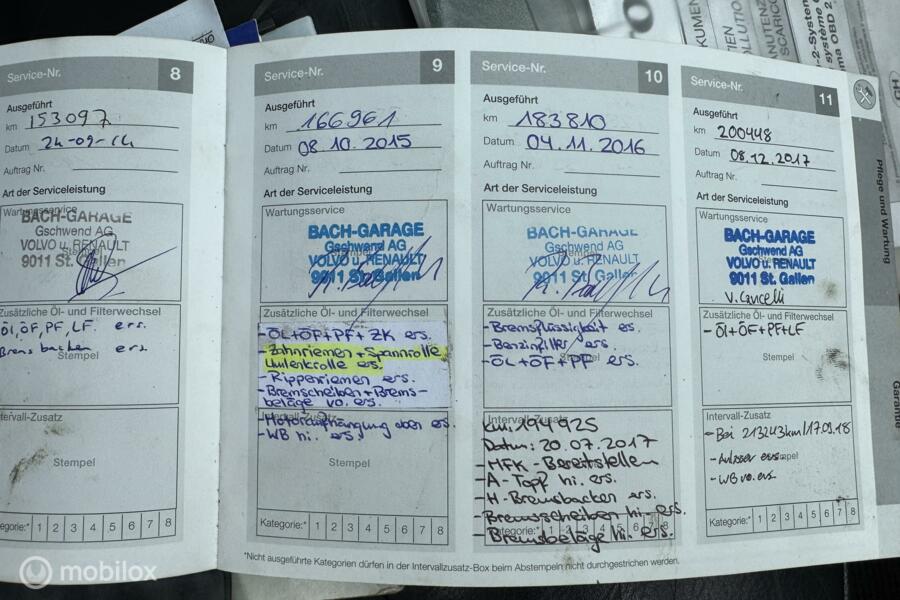 Service-Nr. 8
Ausgeführt
km 153097
Datum 24-09-14
Auftrag Nr.
Art der Serviceleistung
Wartungsservice
BACH-GARAGE
Gschwend AG
VOLVO u. RENAULT
9011 St. Gallen
Zusätzliche Öl- und Filterwechsel
Öl, ÖF, PF, LF. ers.
Bremsbacken ers.
Stempel
tervall-Zusatz
Stempel
egorie:* 1 2 3 4 5 6 7 8
Service-Nr. 9
Ausgeführt
km 166961
Datum 08.10.2015
Auftrag Nr.
Art der Serviceleistung
Wartungsservice
BACH-GARAGE
Gschwend AG
VOLVO u. RENAULT
9011 St. Gallen
Zusätzliche Öl- und Filterwechsel
ÖL+ÖF+PF+ZK ers.
-Zahnriemen + Spannrolle
Umlenkrolle ers.
-Rippenriemen ers.
-Bremscheiben+Brems-
beläge vo. ers.
Intervall-Zusatz
-Motoraufhängung oben ers.
-WB hi. ers.
Stempel
Kategorie:* 1 2 3 4 5 6 7 8
Service-Nr. 10
Ausgeführt
km 183810
Datum 04.11.2016
Auftrag Nr.
Art der Serviceleistung
Wartungsservice
BACH-GARAGE
Gschwend AG
VOLVO u. RENAULT
9011 St. Gallen
Zusätzliche Öl- und Filterwechsel
-Bremsflüssigkeit ers.
-Benzinfilter ers.
-ÖL+ÖF+PF ers.
Intervall-Zusatz
km: 194925
Datum: 20.07.2017
-MFK-Bereitstellen
-A-Topf hi. ers.
-H-Bremsbacken ers.
-Bremsscheiben hi. ers.
-Bremsbeläge hi. ers.
Service-Nr. 11
Ausgeführt
km 200448
Datum 08.12.2017
Auftrag Nr.
Art der Serviceleistung
Wartungsservice
BACH-GARAGE
Gschwend AG
VOLVO u. RENAULT
9011 St. Gallen
V. Cancelli
Zusätzliche Öl- und Filterwechsel
- Öl+ÖF+PF+LF
Stempel
Intervall-Zusatz
-Bei 213243km/17.09.18
-Anlasser ers.
-WB vo. ers.
Kategorie:* 1 2 3 4 5 6 7 8
*Nicht ausgeführte Kategorien dürfen in der Intervallzusatz-Box beim Abstempeln nicht durchgestrichen werden.
Pflege und Wartung
Garantie
mobilox